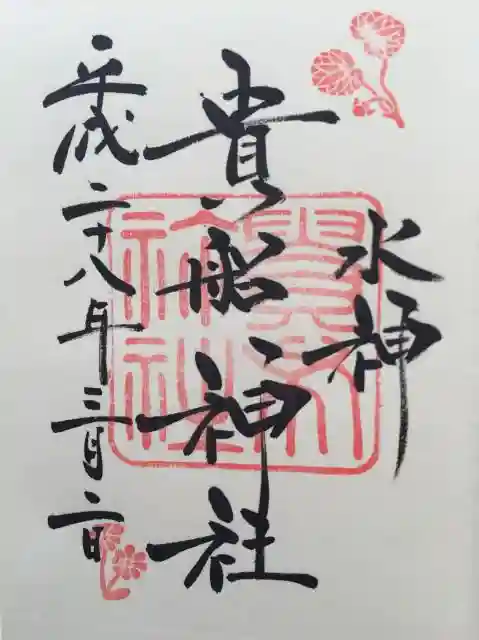 水神
貴船神社
平成二十八年三月二日